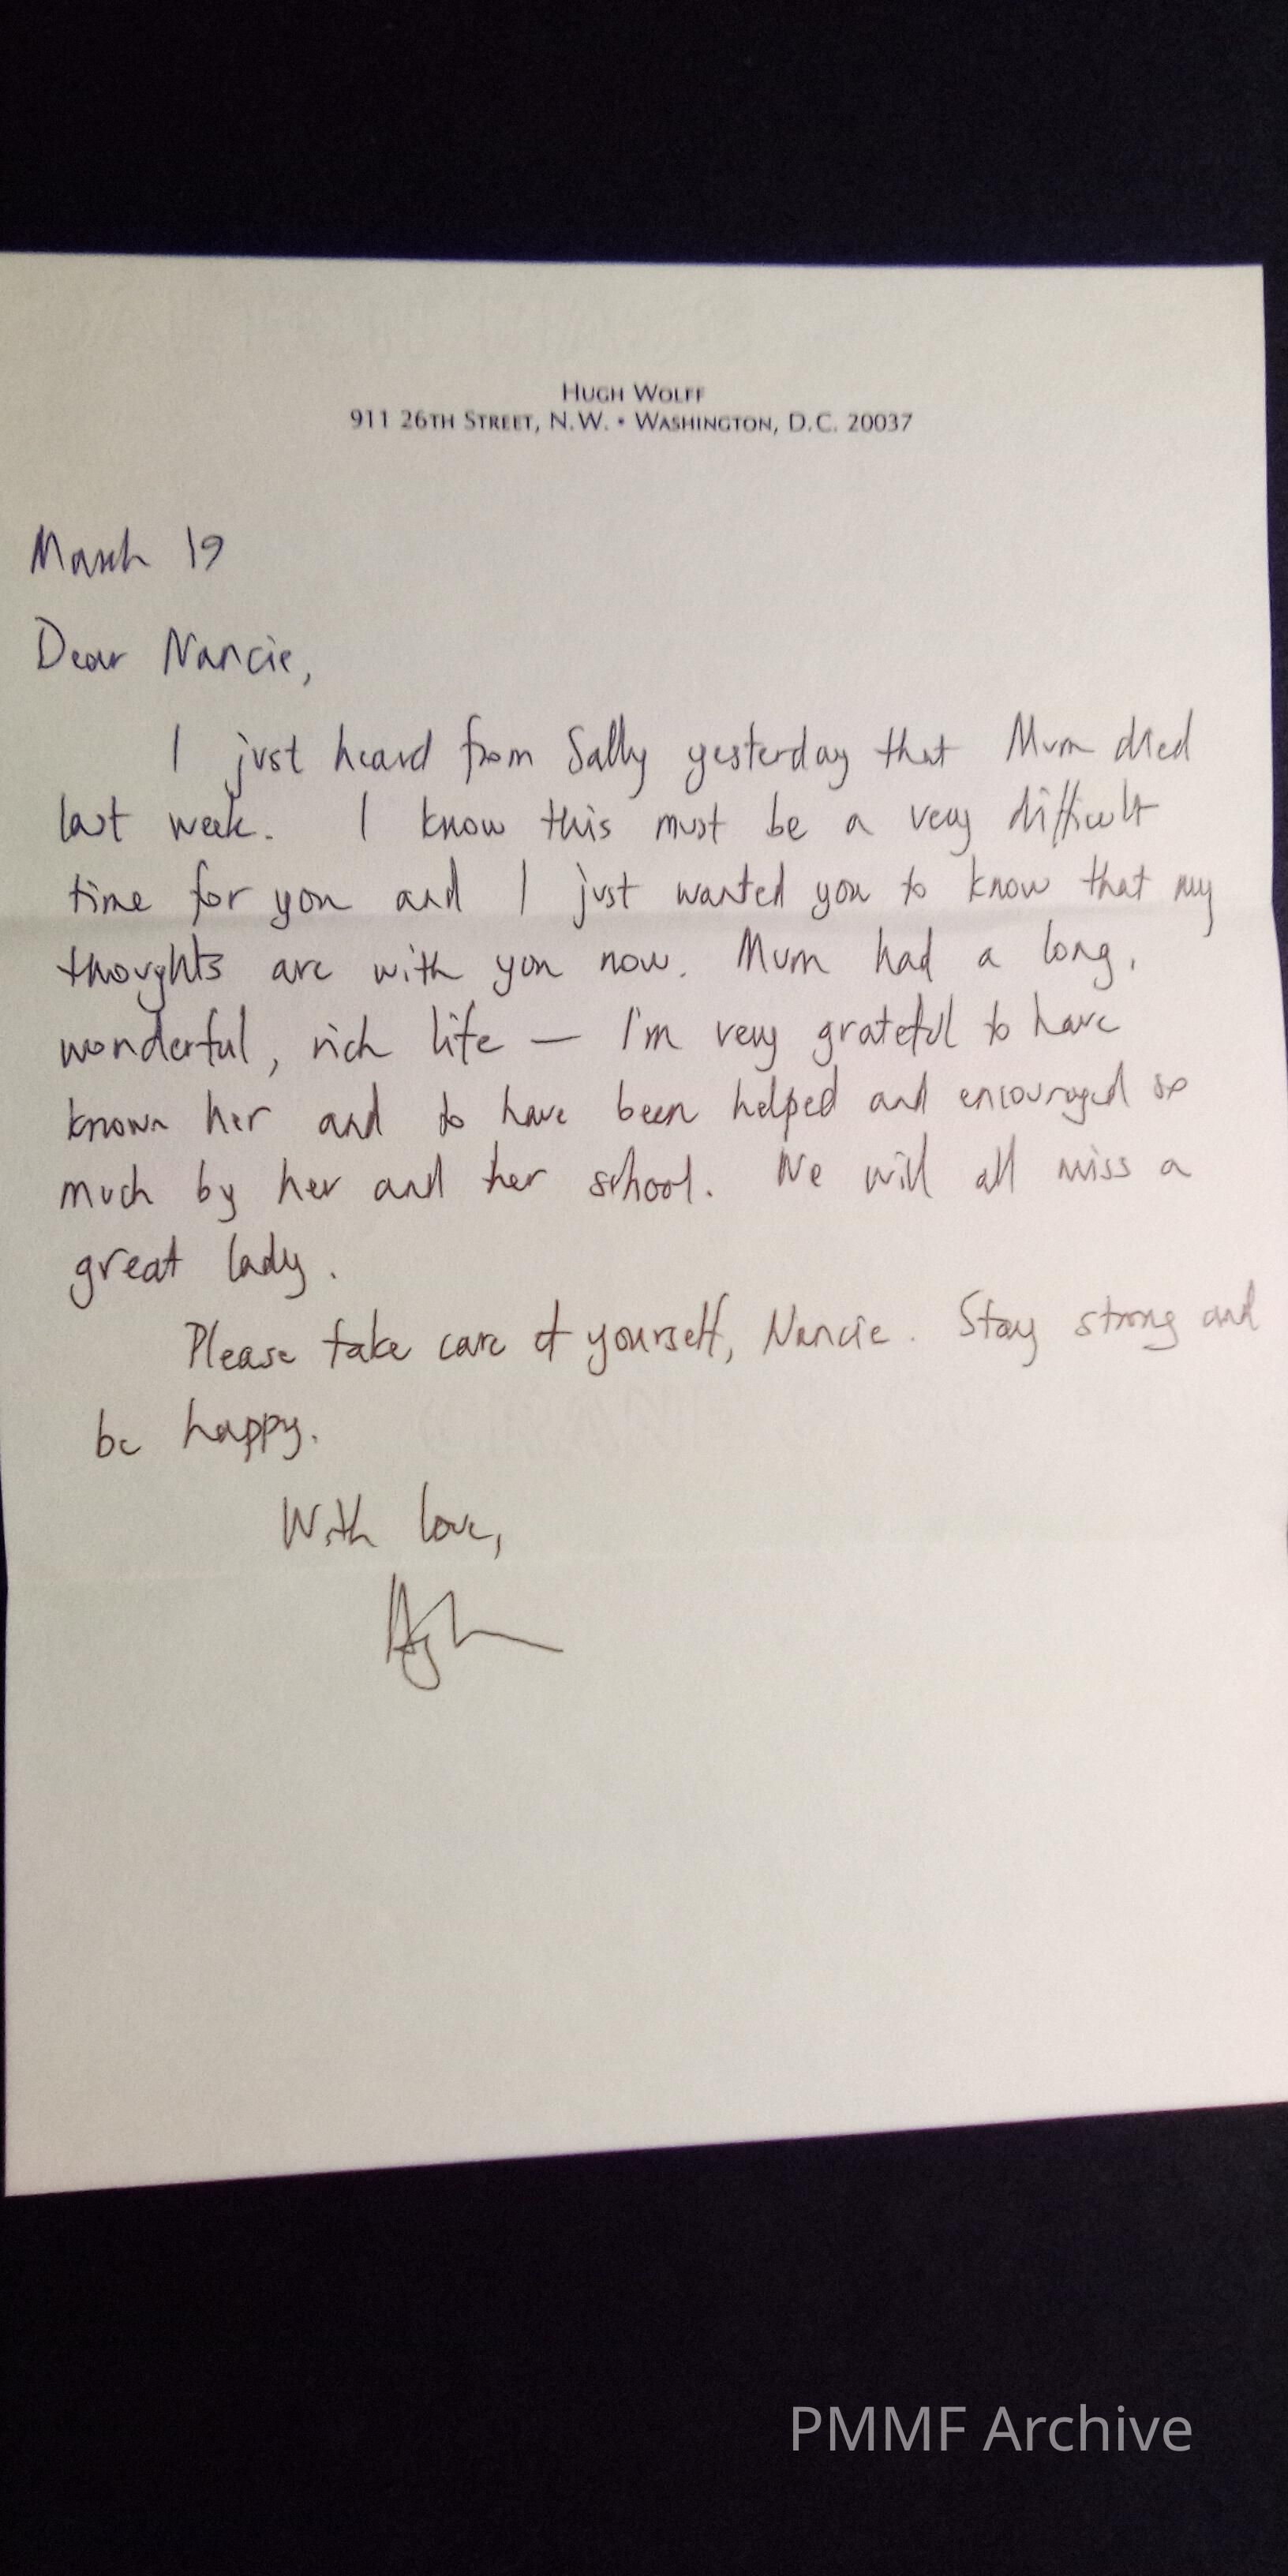 HUGH WOLFF
911 26TH STREET, N.W. • WASHINGTON, D.C. 20037
March 19
Dear Nancie,
I just heard from Sally yesterday that Mum died
last week. I know this must be a very difficult
time for you and I just wanted you to know that my
thoughts are with you now. Mum had a long,
wonderful, rich life — I'm very grateful to have
known her and to have been helped and encouraged so
much by her and her school. We will all miss a
great lady.
Please take care of yourself, Nancie. Stay strong and
be happy.
With love,
Hugh
PMMF Archive